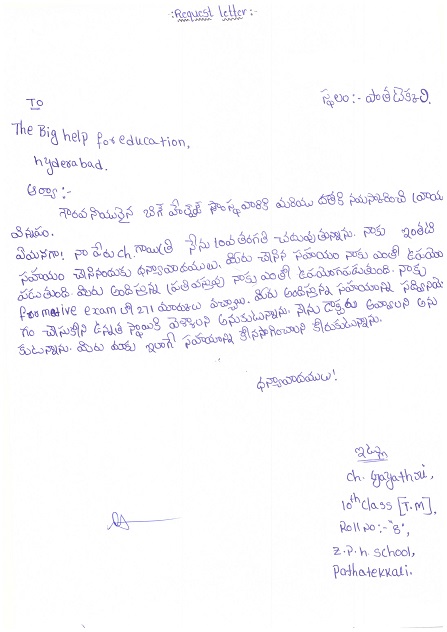 :Request letter:-
స్థలం:- పాతటెక్కలి.
To
The Big help for education,
hyderabad.
ఆర్యా:-
గౌరవనీయులైన బిగ్ హెల్ప్ సంస్థ వారికి మరియు దాతకి నమస్కరించి వ్రాయు
విన్నపం.
ఏమనగా! నా పేరు ch. గాయత్రి నేను 10వ తరగతి చదువుతున్నాను. నాకు ఇంతటి
సహాయం చేసినందుకు ధన్యావాదములు. మీరు చేసిన సహాయం నాకు ఎంతో ఉపయోగ
పడుతుంది. మీరు అందిస్తున్న ప్రతి వస్తువు నాకు ఎంతో ఉపయోగపడుతుంది. నాకు
formative exam లో 271 మార్కులు వచ్చాయి. మీరు అందిస్తున్న సహాయాన్ని సద్వినియో
గం చేసుకొని ఉన్నత స్థాయికి వెళ్ళాలని అనుకుంటున్నాను. నేను డాక్టరు అవ్వాలని అను
కుంటున్నాను. మీరు మాకు ఇలాగే సహాయాన్ని కొనసాగించాలని కోరుకుంటున్నాను.
ధన్యావాదములు!
ఇట్లు
ch. gayathri,
10th class [T.M],
Roll no:- '8',
Z.P.h. school,
Pathatekkali.